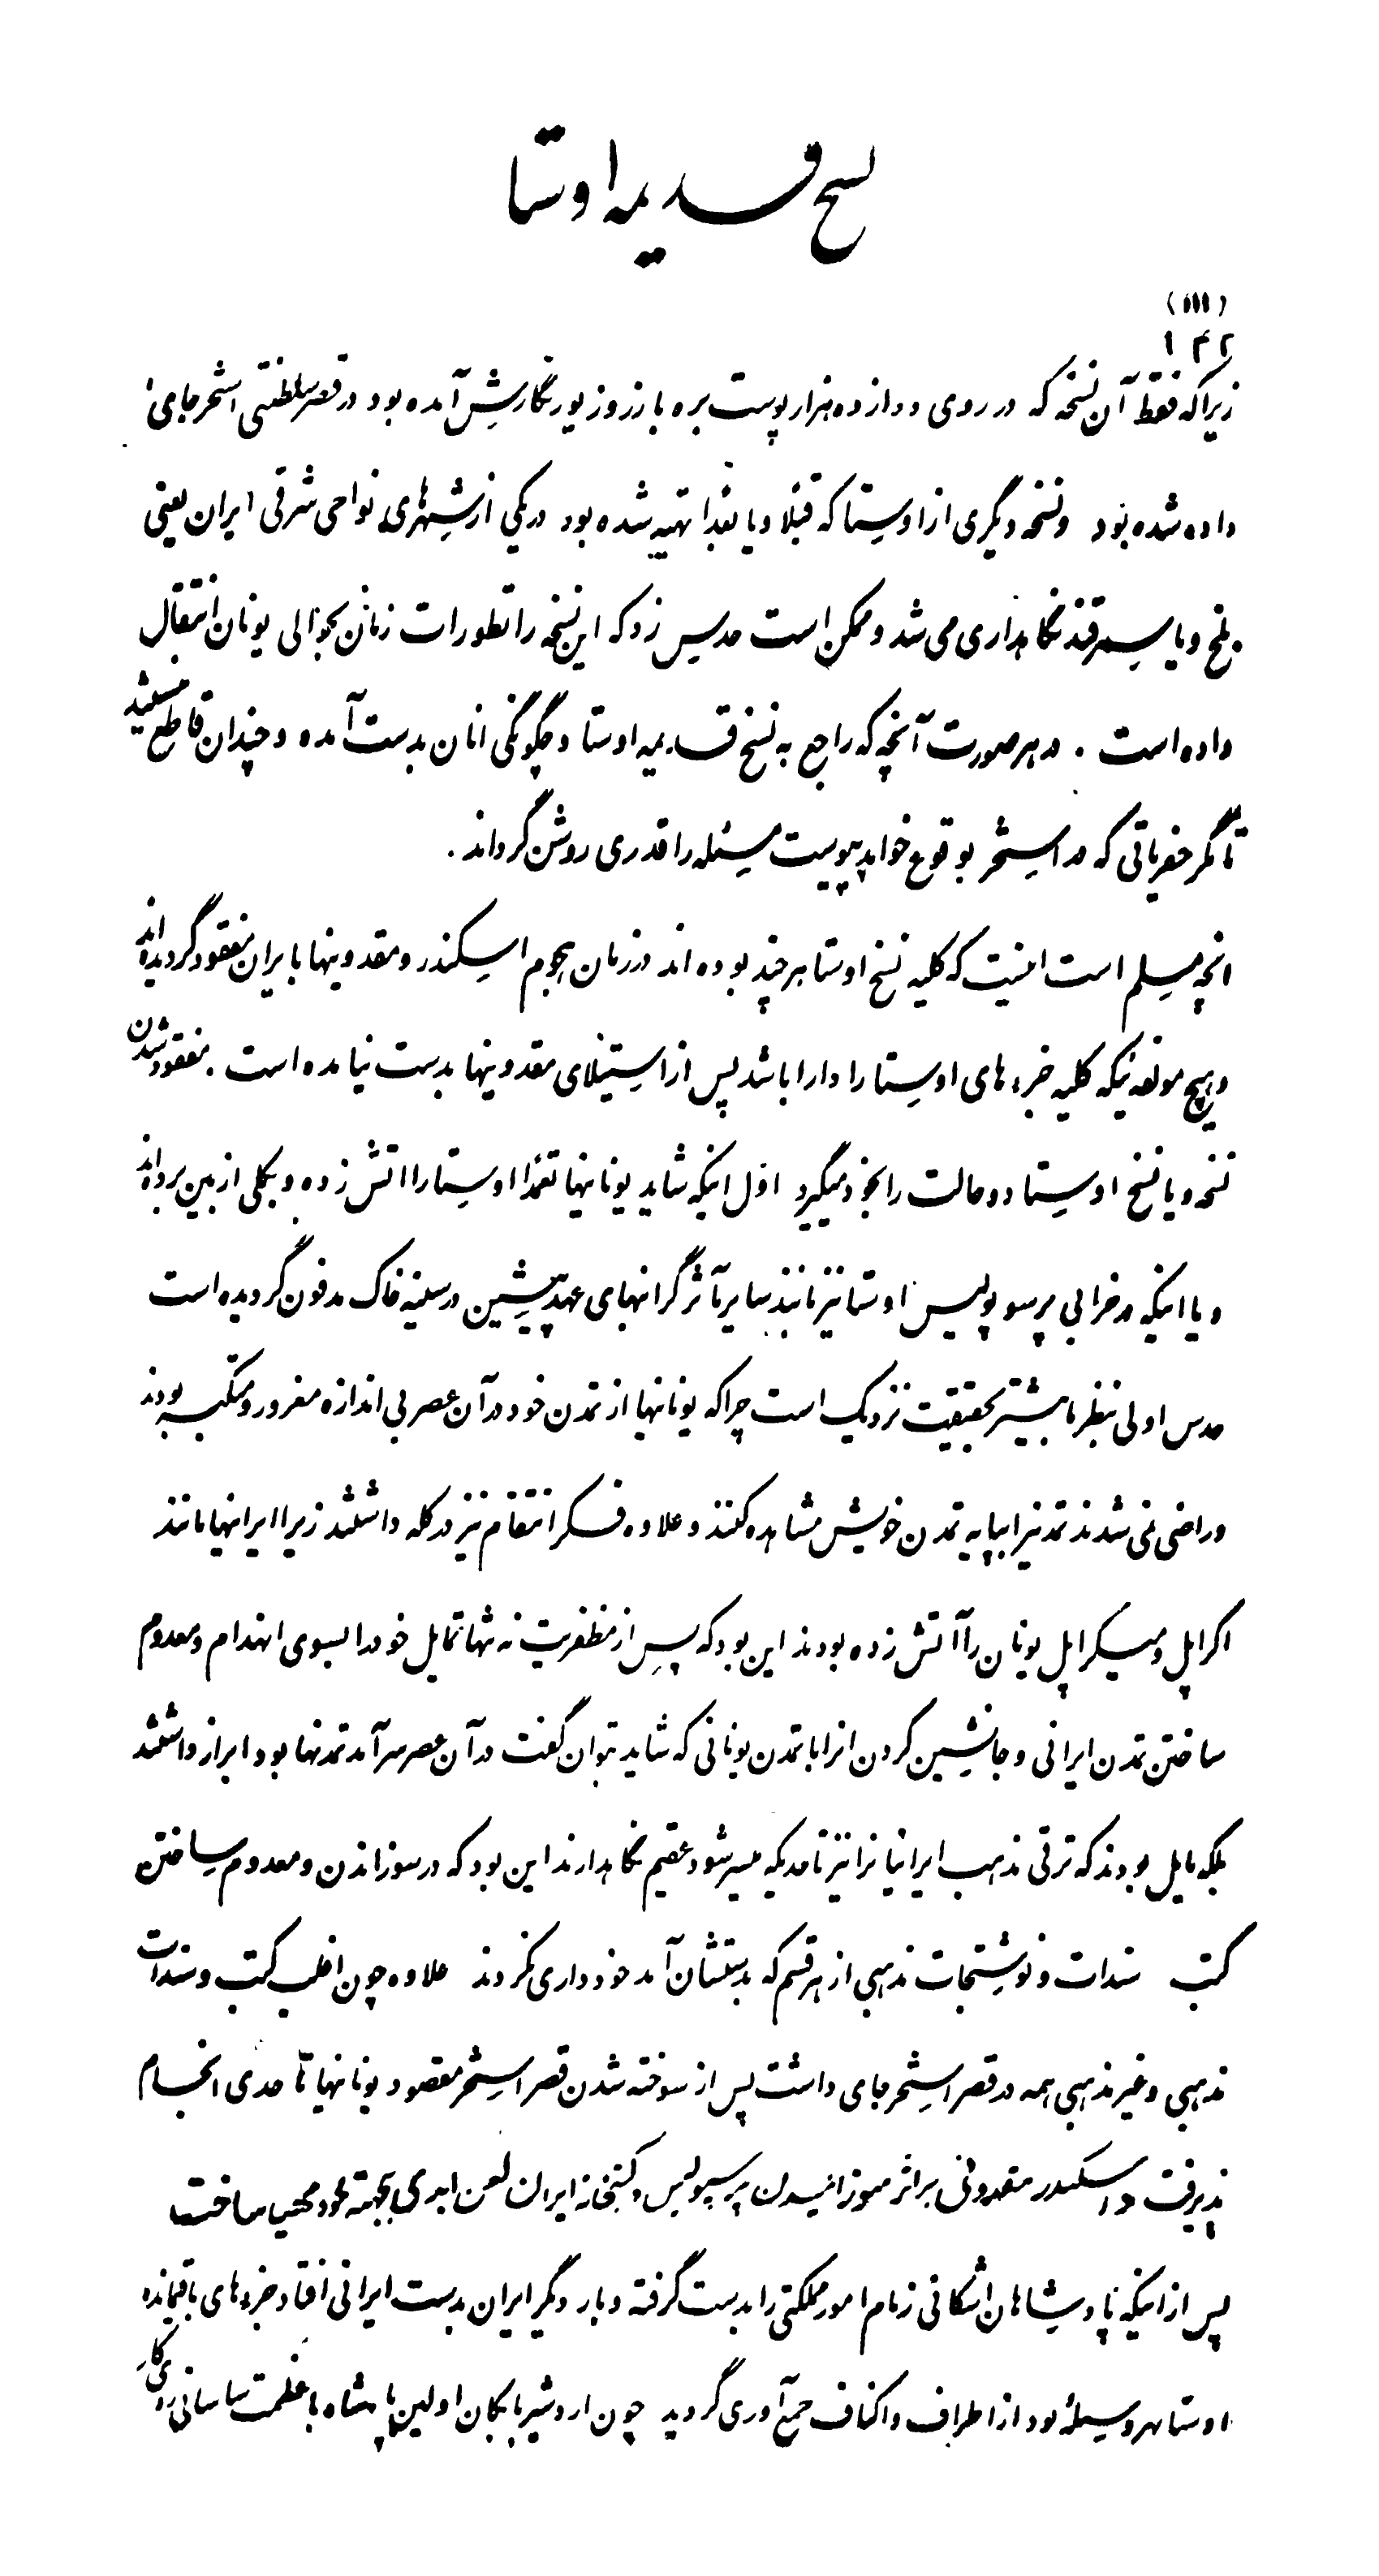 نسخ قدیمه اوستا
(۱۱۱)
۱۴۲
زیرا که فقط آن نسخه که در روی دوازده هزار پوست بره با زر و زیور نگارش آمده بود در قصر سلطنتی استخر جای
داده شده بود و نسخه دیگری از اوستا که قبلا و یا بعدا تهیه شده بود در یکی از شهرهای نواحی شرقی ایران یعنی
بلخ و یا سمرقند نگاهداری می شد و ممکن است حدس زد که این نسخه را تطورات زمان بحوالی یونان انتقال
داده است . در هر صورت آنچه که راجع به نسخ قدیمه اوستا و چگونگی انان بدست آمده و چندان قاطع نیستند
تا مگر حفریاتی که در استخر بوقوع خواهد پیوست مسئله را قدری روشن گرداند .
انچه مسلم است اینست که کلیه نسخ اوستا هر چند بوده اند در زمان هجوم اسکندر و مقدونیها بایران مفقود گردیده اند
و هیچ مولفه ئیکه کلیه جزء های اوستا را دارا باشد پس از استیلای مقدونیها بدست نیامده است . مفقود شدن
نسخه و یا نسخ اوستا دو حالت را بخود میگیرد اول اینکه شاید یونانیها تعمدا اوستا را اتش زده و بکلی از بین برده اند
و یا اینکه در خرابی پرسوپولیس اوستا نیز مانند سایر مآثر گرانبهای عهد پیشین در سینه خاک مدفون گردیده است
حدس اولی بنظر ما بیشتر بحقیقت نزدیک است چرا که یونانیها از تمدن خود در آن عصر بی اندازه مغرور و متکبر بودند
و راضی نمی شدند تمدنیرا بپایه تمدن خویش مشاهده کنند و علاوه فکر انتقام نیز در کله داشتند زیرا ایرانیها مانند
اکراپل و میکراپل یونان را آتش زده بودند این بود که پس از مظفریت نه تنها تمایل خود را بسوی انهدام و معدوم
ساختن تمدن ایرانی و جانشین کردن انرا با تمدن یونانی که شاید بتوان گفت در آن عصر سرآمد تمدنها بود ابراز داشتند
بلکه مایل بودند که ترقی مذهب ایرانیانرا نیز تا حدیکه میسر شود عقیم نگاهدارند این بود که در سوزاندن و معدوم ساختن
کتب سندات و نوشتجات مذهبی از هر قسم که بدستشان آمد خودداری نکردند علاوه چون اغلب کتب و سندات
مذهبی و غیر مذهبی همه در قصر استخر جای داشت پس از سوخته شدن قصر استخر مقصود یونانیها تا حدی انجام
پذیرفت و اسکندر مقدونی بر اثر سوزانیدن پرسپولیس و کتبخانه ایران لعن ابدی بجهته خود مهیا ساخت
پس از اینکه پادشاهان اشکانی زمام امور مملکتی را بدست گرفته و بار دیگر ایران بدست ایرانی افتاد جزء های باقیمانده
اوستا بهر وسیله بود از اطراف و اکناف جمع آوری گردید چون اردشیر بابکان اولین پادشاه با عظمت ساسانی روی کار